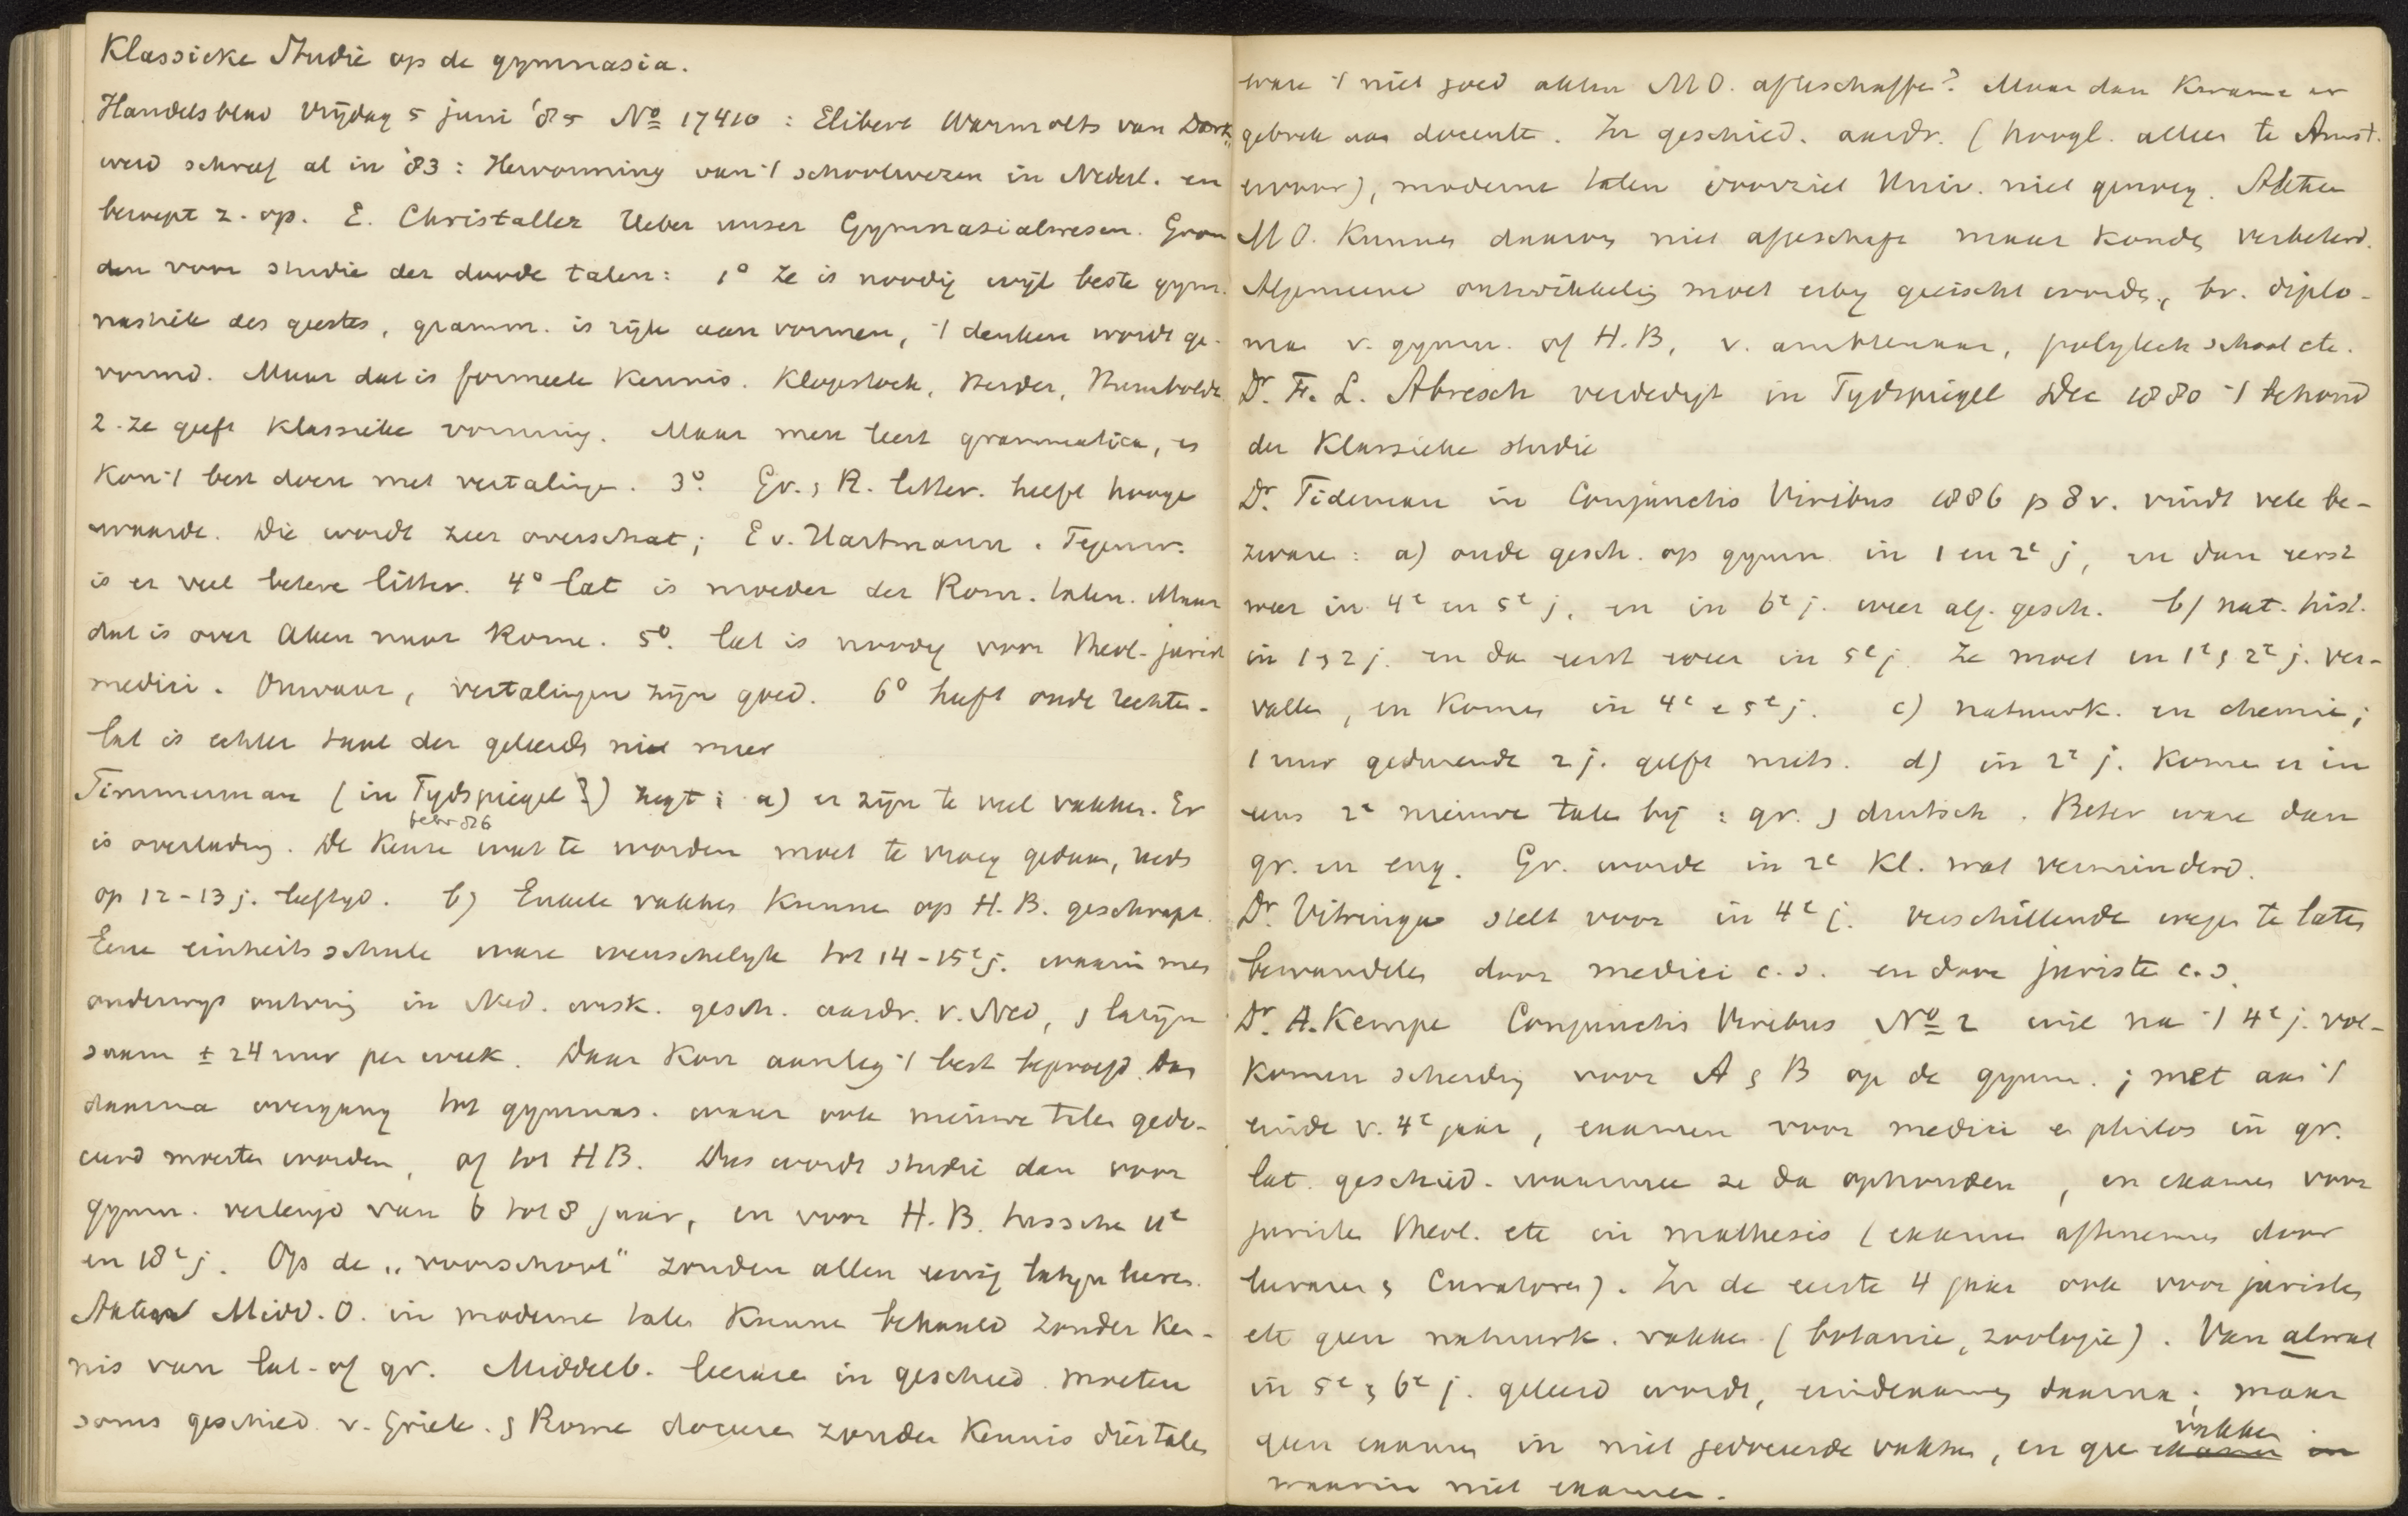 Klassieke Studie op de gymnasia.
Handelsblad Vrijdag 5 juni '85 No 17410 : Elibert Warmolts van Dork„
werd schreef al in '83 : Hervorming van 't schoolwezen in Nederl. en
beroept z. op. E. Christaller Ueber unser Gymnasialwesen. Gron
den voor studie der doode talen: 1o Ze is noodig wijl beste gym.
nastiek des geestes, gramm. is rijk aan vormen, 't denken wordt ge-
vormd. Maar dat is formeele kennis. Klopstock, Herder, Humboldt.
2. Ze geeft klassieke vorming. Maar men leert grammatica, en
kon 't best doen met vertalingen. 3o. Gr. & R. letter. heeft hooge
waarde. Die wordt zeer overschat; E v. Hartmann. Tegenw.
is er veel betere litter. 4o Lat is moeder der Rom. talen. Maar
dat is over Aken naar Rome. 5o. Lat is noodig voor theol. jurist
medici. Onwaar, vertalingen zijn goed. 6o heeft oude rechten.
Lat is echter taal der geleerden niet meer
Timmerman (in Tydspiegel ?) zegt : a) er zijn te veel vakken. Er
febr 86
is overlading. De keuze wat te worden moet te vroeg gedaan, reeds
op 12-13 j. leeftyd. b) Enkele vakken kunnen op H.B. geschrapt.
Eene einheitsschule ware wenschelyk tot 14-15e j. waarin men
onderwys ontving in Ned. wisk. gesch. aardr. v. Ned, & latyn
saam ± 24 uur per week. Daar kon aanleg 't best beproefd. Dan
daarna overgang tot gymnas. waar ook nieuwe talen gedo-
ceerd moesten worden, of tot HB. Dus wordt studie dan voor
gymn. verlengd van 6 tot 8 jaar, en voor H.B. tusschen 11e
en 18e j. Op de „voorschool" zouden allen eenig latyn leeren.
Akten Midd. O. in moderne talen kunnen behaald zonder ken-
nis van lat. of gr. Middelb. leeraren in geschied. moeten
soms geschied. v. Griek. & Rome doceren zonder kennis dier talen
ware 't niet goed akten MO. afteschaffen? Maar dan kwame er
gebrek aan docenten. In geschied. aardr. (hoogl. alleen te Amst.
ervoor), moderne talen voorziet Univ. niet genoeg. Akten
MO. kunnen daarom niet afgeschaft maar konden verbeterd.
Algemeene ontwikkeling moet erby geeischt worden, bv. diplo-
ma v. gymn. of H.B, v. ambtenaar, polytech school etc.
Dr. F. L. Abresch verdedigt in Tydspiegel Dec 1880 't behoud
der klassieke studie
Dr. Tideman in Conjunctis Viribus 1886 p 8 v. vindt vele be-
zwaren : a) oude gesch. op gymn. in 1 en 2e j, en dan eerst
weer in 4e en 5e j. en in 6e j. weer alg. gesch. b) nat. hist.
in 1 & 2 j. en dan eerst weer in 5e j. Ze moet in 1e & 2e j. ver-
vallen, en komen in 4e & 5e j. c) natuurk. en chemie;
1 uur gedurende 2 j. geeft niets. d) in 2e j. komen er in
eens 2 nieuwe talen bij : gr. & duitsch. Beter ware dan
gr. en eng. Gr. worde in 2e Kl. wat verminderd.
Dr. Vitringa stelt voor in 4e j. verschillende wegen te laten
bewandelen door medici c.s. en door juristen c.s.
Dr. A. Kempe Conjunctis Viribus No 2 wil na 't 4e j. vol-
komen scheiding voor A & B op de gymn. ; met aan 't
einde v. 4e jaar, examen voor medici en philos in gr.
lat. geschied. waarmee ze dan ophouden, en examen voor
juristen theol. etc in mathesis (examen aftenemen door
leeraren & Curatoren). In de eerste 4 jaar ook voor juristen
etc geen natuurk. vakken (botanie, zoologie). Van alwat
in 5e & 6e j. geleerd wordt, eindexamen daarna ; maar
geen examen in niet gedoceerde vakken, en geen vakken
waarin niet examen.